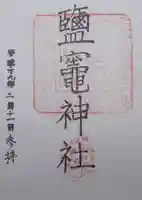 鹽竈神社
平成廿九年二月十一日
参拝